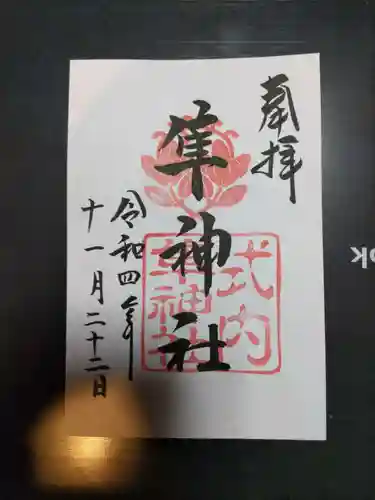 奉拝
隼神社
式内
隼神社
令和四年
十一月二十二日